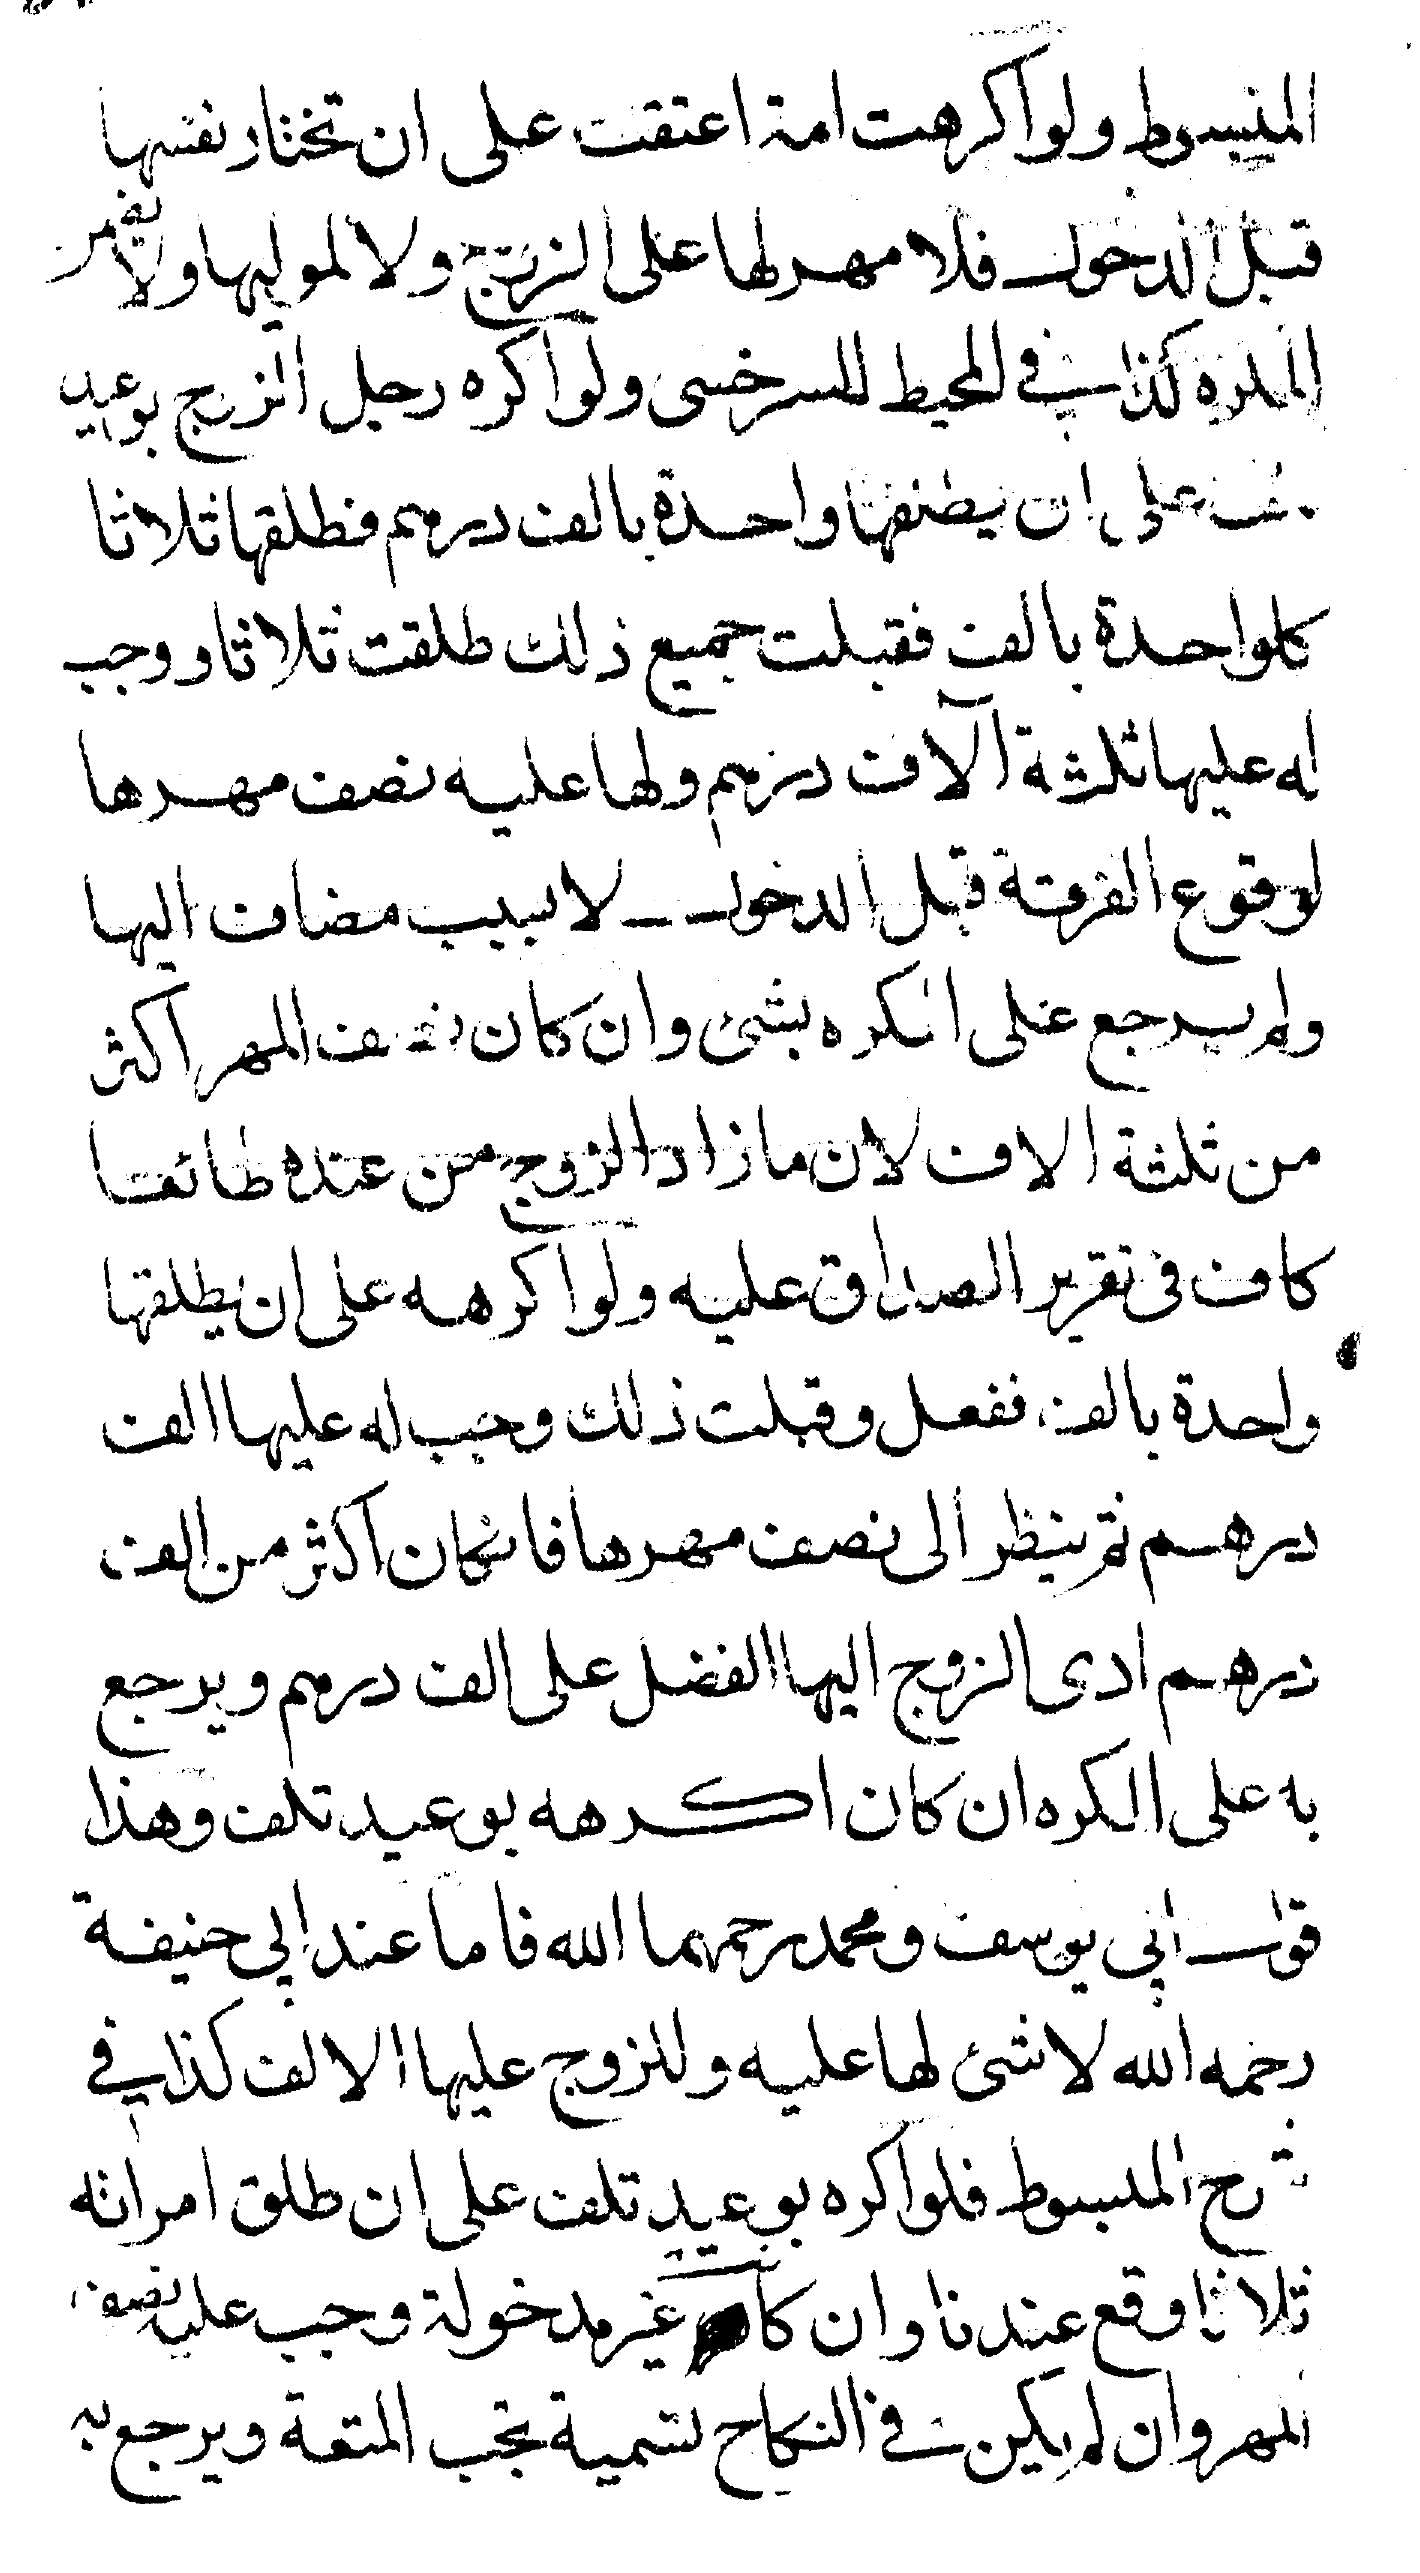 المبسوط ولو اكرهت امة اعتقت على ان تختار نفسها
قبل الدخول فلا مهر لها على الزوج ولا لموليها ولا يضمن
المكره كذا في المحيط للسرخسى ولو اكره رجل الزوج بوعيد
تلف على ان يطلقها واحدة بالف درهم فطلقها ثلاثا
كلواحدة بالف فقبلت جميع ذلك طلقت ثلاثا ووجب
له عليها ثلثة آلاف درهم ولها عليه نصف مهرها
لوقوع الفرقة قبل الدخول لا بسبب مضاف اليها
ولم يرجع على المكره بشئ وان كان نصف المهر اكثر
من ثلثة الاف لان ما زاد الزوج من عنده طائعا
كاف فى تقرير الصداق عليه ولو اكرهه على ان يطلقها
واحدة بالف ففعل وقبلت ذلك وجب له عليها الف
درهم ثم ينظر الى نصف مهرها فانكان اكثر من الف
درهم ادى الزوج اليها الفضل على الف درهم ويرجع
به على المكره ان كان اكرهه بوعيد تلف وهذا
قول ابي يوسف ومحمد رحمهما الله فاما عند ابي حنيفة
رحمه الله لا شئ لها عليه وللزوج عليها الالف كذا في
شرح المبسوط فلو اكره بوعيد تلف على ان طلق امراته
ثلاثا وقع عندنا وان كا غير مدخولة وجب عليه نصف
المهر وان لم يكن في النكاح تسمية تجب المتعة ويرجع به